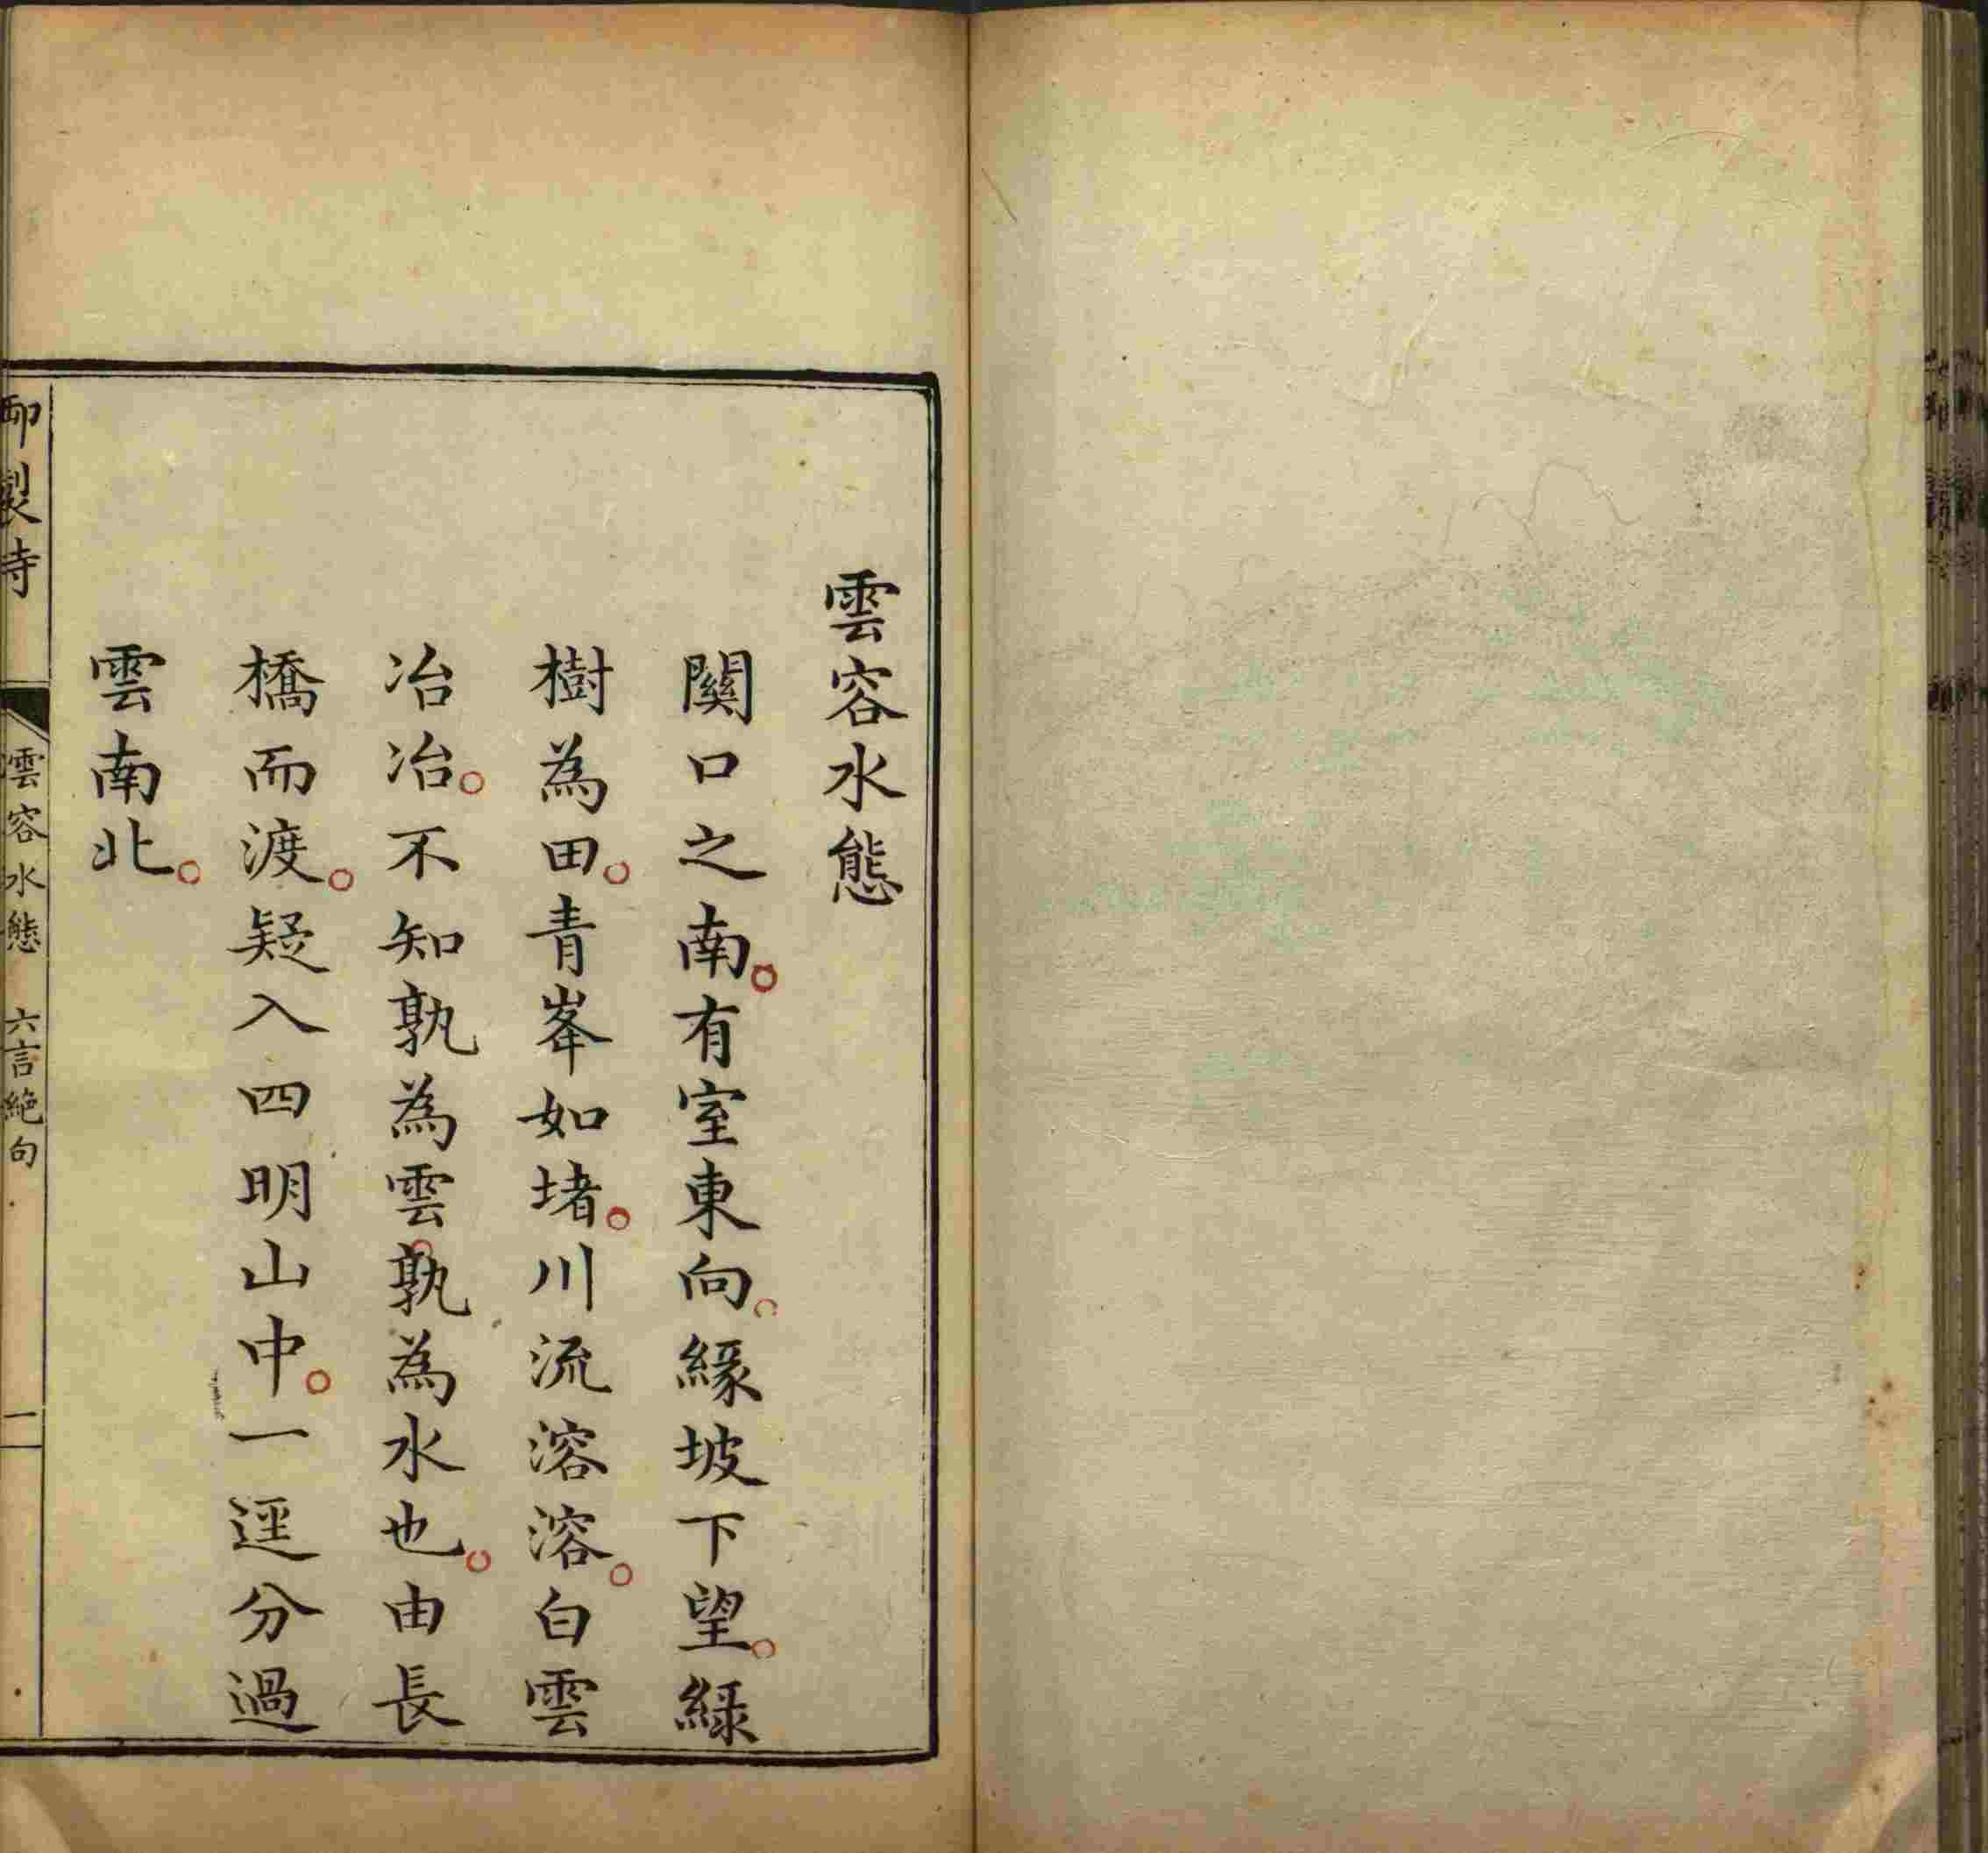 雲容水態
關口之南。有室東向。緣坡下望。綠
樹為田。青峯如堵。川流溶溶。白雲
冶冶。不知孰為雲。孰為水也。由長
橋而渡。疑入四明山中。一逕分過
雲南北。
御製詩
雲容水態 六言絶句
一